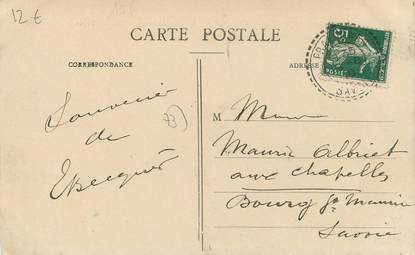 12 €
CARTE POSTALE
CORRESPONDANCE
ADRESSE
5
POSTES
SAV
Souvenir
de
73
M
Maurice Albriet
aux chapelles
Bourg St Maurice
Savoie